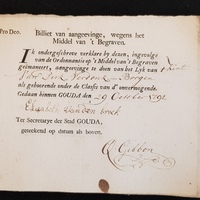 Pro Deo.
Billiet van aangeevinge, wegens het
Middel van 't Begraven.
Ik ondergeschreve verklare by dezen, ingevolge
van de Ordonnantie op 't Middel van 't Begraven
geëmaneert, aangeevinge te doen van het Lyk van
Kint
als gehoorende onder de Classis van d' onvermogende.
Gedaan binnen GOUDA den 29 October 1791
Elisabeth van den broek
Ter Secretarye der Stad GOUDA,
geteekend op datum als boven.